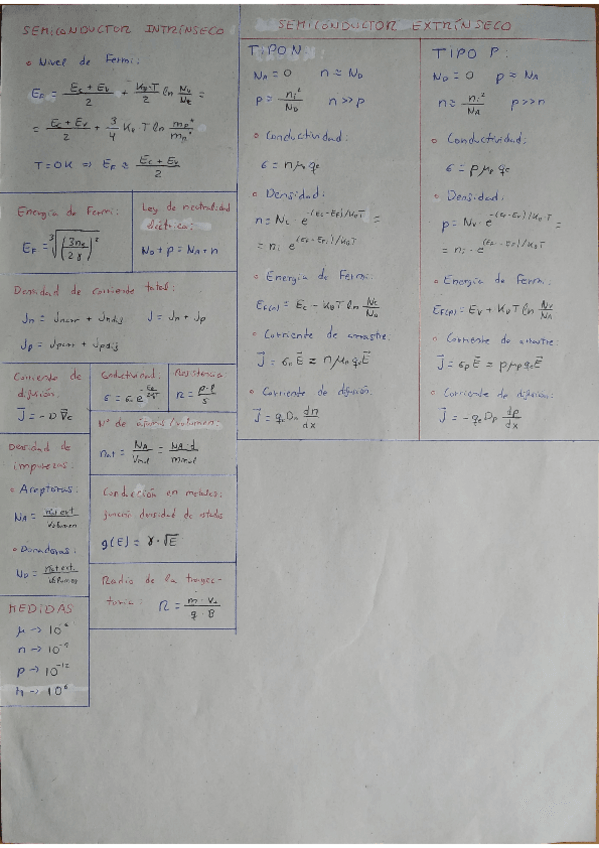 SEMICONDUCTOR INTRÍNSECO
• Nivel de Fermi:
E_F = (E_C + E_V)/2 + (K_B·T)/2 ln N_V/N_C =
= (E_C + E_V)/2 + 3/4 K_B T ln m_p*/m_n*
T = 0K => E_F ≈ (E_C + E_V)/2
Energía de Fermi:
E_F = ∛(3n_e/2γ)²
Ley de neutralidad
eléctrica:
N_D + p = N_A + n
Densidad de corriente total:
J_n = J_narr + J_ndif J = J_n + J_p
J_p = J_parr + J_pdif
Corriente de
difusión:
J = -D ∇c
Conductividad:
Resistencia
R = ρ·l/S
Nº de átomos/volumen:
n_at = N_A/V_mol = N_A·d/m_mol
Densidad de
impurezas:
• Aceptoras:
N_A = nºat ext./Volumen
• Donadoras:
N_D = nºat ext./Volumen
Conducción en metales:
función densidad de estados
g(E) = γ·√E
Radio de la trayec-
toria: R = m·v_0/q·B
MEDIDAS
μ -> 10^-6
n -> 10^-9
p -> 10^-12
M -> 10^6
SEMICONDUCTOR EXTRÍNSECO
TIPO N:
N_A = 0 n ≈ N_D
p ≈ n_i²/N_D n >> p
• Conductividad:
σ = n μ_n q_e
• Densidad:
n = N_C · e^-(E_C-E_F)/K_BT =
= n_i · e^(E_F-E_Fi)/K_BT
• Energía de Fermi:
E_F(n) = E_C - K_B T ln N_C/N_D
• Corriente de arrastre:
J = σ_n E = n μ_n q_e E
• Corriente de difusión:
J = q_e D_n dn/dx
TIPO P:
N_D = 0 p ≈ N_A
n ≈ n_i²/N_A p >> n
• Conductividad:
σ = p μ_p q_e
• Densidad:
p = N_V · e^-(E_F-E_V)/K_BT =
= n_i · e
• Energía de Fermi:
E_F(p) = E_V + K_B T ln N_V/N_A
• Corriente de arrastre:
J = σ_p E = p μ_p q_e E
• Corriente de difusión:
J = -q_e D_p dp/dx